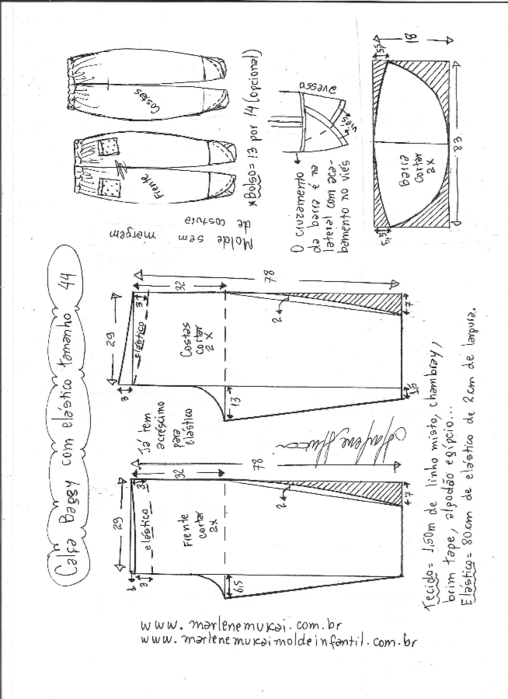 Calça Baggy com elástico tamanho 44
Molde sem margem
de costura
Frente
Costas
*Bolso = 13 por 14 (opcional)
O cruzamento
da barra é na
lateral com aca-
bamento no viés
avesso
viés
18
5,5
Barra
cortar
2x
83
5,5
78
32
3
29
elástico
Costas
cortar
2x
2
7
3
13
1,5
Já tem
acréscimo
para
elástico
78
32
3
29
elástico
Frente
cortar
2x
2
7
1
3
6,5
Marlene Mukai
Tecido = 1,50m de linho misto, chambray,
brim tape, algodão egípcio...
Elástico = 80cm de elástico de 2cm de largura.
www.marlenemukai.com.br
www.marlenemukaimoldeinfantil.com.br